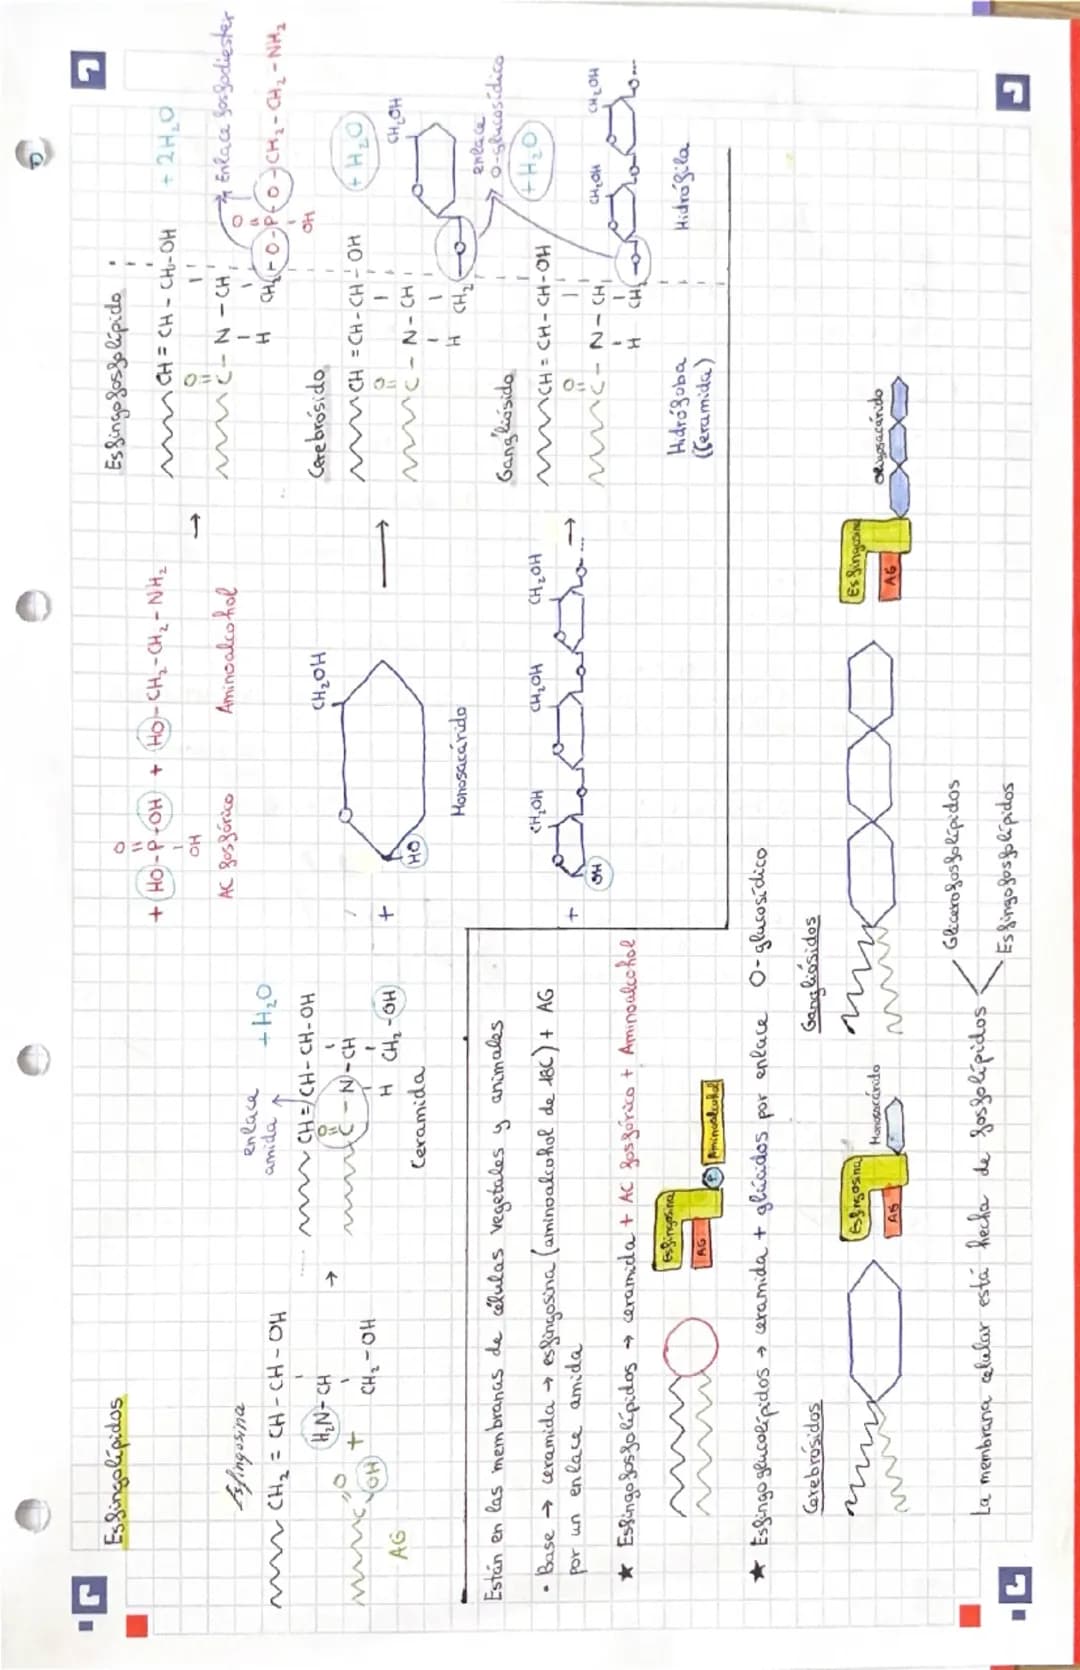 Esfingolípidos
Esfingosina
CH₂ = CH - CH - OH
H₂N - CH
CH₂ - OH
C
O
OH
+
AG
→
enlace
amida
+ H₂O
CH = CH - CH - OH
O
C - N - CH
H CH₂ - OH
Ceramida
O
+ HO - P - OH + HO - CH₂ - CH₂ - NH₂
OH
AC fosfórico Aminoalcohol
→
Esfingofosfolípido
CH = CH - CH - OH + 2H₂O
O
C - N - CH
H CH₂ - O - P - O - CH₂ - CH₂ - NH₂
O
OH
Enlace fosfodiester
+
O
CH₂OH
HO
Monosacárido
→
Cerebrósido
CH = CH - CH - OH + H₂O
O
C - N - CH
H CH₂ - O -
O
CH₂OH
enlace
O-glucosídico
+
CH₂OH CH₂OH CH₂OH
OH
O...
→
Gangliósido
CH = CH - CH - OH + H₂O
O
C - N - CH
H CH₂ - O -
CH₂OH CH₂OH
O...
Hidrófoba
(Ceramida)
Hidrófila
Están en las membranas de células vegetales y animales
• Base → ceramida → esfingosina (aminoalcohol de 18C) + AG
por un enlace amida
★ Esfingofosfolípidos → ceramida + AC fosfórico + Aminoalcohol
Esfingosina
AG
P
Aminoalcohol
★ Esfingoglucolípidos → ceramida + glúcidos por enlace O-glucosídico
Cerebrósidos
Esfingosina
AG
Monosacárido
Gangliósidos
Esfingosina
AG
Oligosacárido
La membrana celular está hecha de fosfolípidos
Glicerofosfolípidos
Esfingofosfolípidos